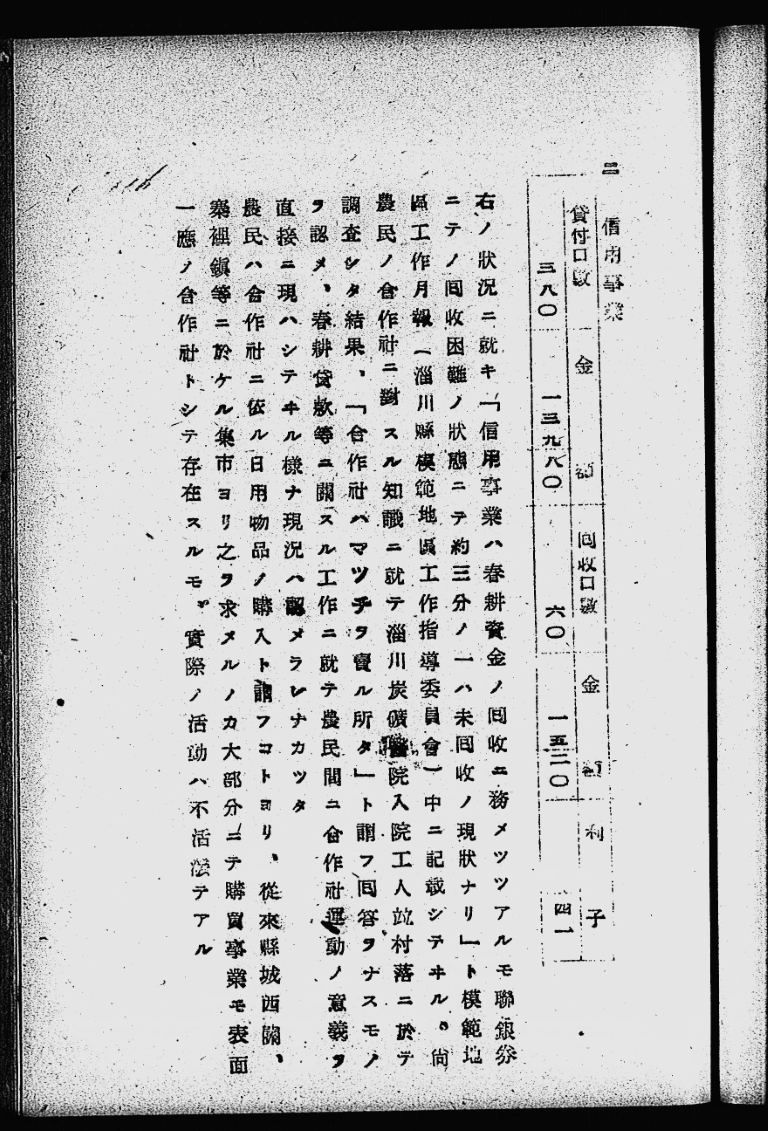 二 信用事業
貸付口数 金額 回收口数 金額 利子
三八〇 一三九八〇 六〇 一五二〇 四一
右ノ狀況ニ就キ「信用事業ハ春耕資金ノ回收ニ務メツツアルモ聯銀券
ニテノ回收困難ノ狀態ニテ約三分ノ一ハ未回收ノ現狀ナリ」ト模範地
區工作月報（淄川縣模範地區工作指導委員會）中ニ記載シテヰル。尙
農民ノ合作社ニ對スル知識ニ就テ淄川炭礦醫院入院工人竝村落ニ於テ
調査シタ結果、「合作社ハマツチヲ賣ル所タ」ト謂フ回答ヲナスモノ
ヲ認メ、春耕貸款等ニ關スル工作ニ就テ農民間ニ合作社運動ノ意義ヲ
直接ニ現ハシテヰル樣ナ現況ハ認メラレナカツタ
農民ハ合作社ニ依ル日用物品ノ購入ト謂フコトヨリ、從來縣城西關、
寨裡鎭等ニ於ケル集市ヨリ之ヲ求メルノカ大部分ニテ購買事業モ表面
一應ノ合作社トシテ存在スルモ。實際ノ活動ハ不活潑テアル